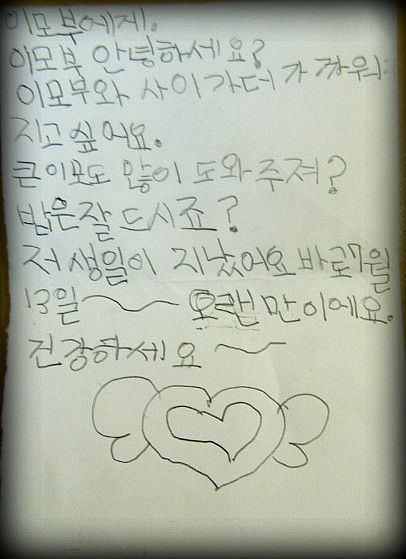 이모부에게.
이모부 안녕하세요?
이모부와 사이가 더 가까워
지고 싶어요.
큰이모도 많이 도와주져?
밥은 잘 드시죠?
저 생일이 지났어요 바로 7월
13일~ 오랜만이에요.
건강하세요~